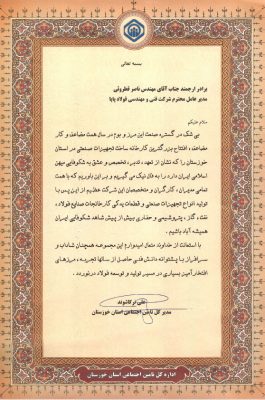 بسمه تعالی
برادر ارجمند جناب آقای مهندس ناصر قطرونی
مدیر عامل محترم شرکت فنی و مهندسی فولاد پایا
سلام علیکم
بی شک در گستره صنعت این مرز و بوم در سال همت مضاعف و کار
مضاعف، افتتاح بزرگترین کارخانه ساخت تجهیزات صنعتی در استان
خوزستان را که نشان از تعهد، تدبر، تخصص و عشق به شکوفایی میهن
اسلامی ایران دارد را به فال نیک می گیریم و بر این باوریم که با همت
تمامی مدیران، کارگران و متخصصان این شرکت عظیم از این پس با
تولید انواع تجهیزات صنعتی و قطعات یدکی کارخانجات صنایع فولاد،
نفت، گاز، پتروشیمی و حفاری بیش از پیش شاهد شکوفایی ایران
همیشه آباد باشیم.
با استعانت از خداوند متعال امیدوارم این مجموعه همچنان شاداب و
سرافراز با پشتوانه دانش فنی حاصل از سالها تجربه، مرزهای
افتخارآمیز بسیاری در مسیر تولید و توسعه فولاد درنوردد.
علی ترکاشوند
مدیر کل تامین اجتماعی استان خوزستان
اداره کل تامین اجتماعی استان خوزستان